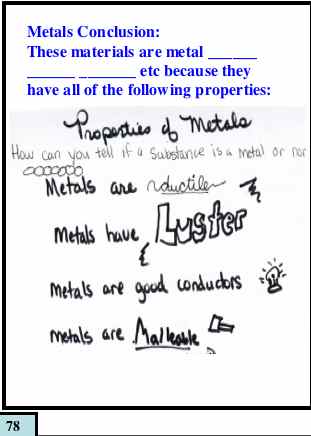 Metals Conclusion:
These materials are metal ______
______ _______ etc because they
have all of the following properties:
Properties of Metals
How can you tell if a substance is a metal or nor
Metals are ductile
Metals have Luster
Metals are good conductors
Metals are Malleable
78